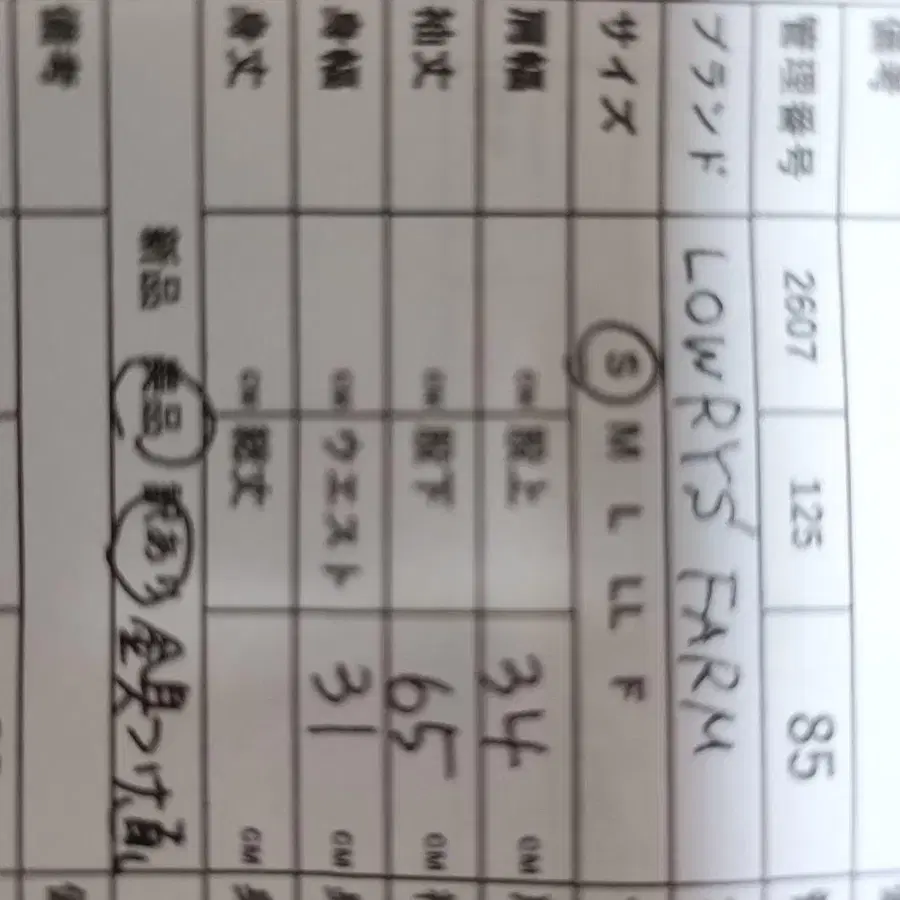 備考
管理番号 2607 125 85
ブランド LOWRYS FARM
サイズ S M L LL F
肩幅 CM 股上 34 CM
袖丈 CM 股下 65 CM
身幅 CM ウエスト 31 CM
身丈 CM 総丈 CM
新品 美品 訳あり 金具つけ直し
備考